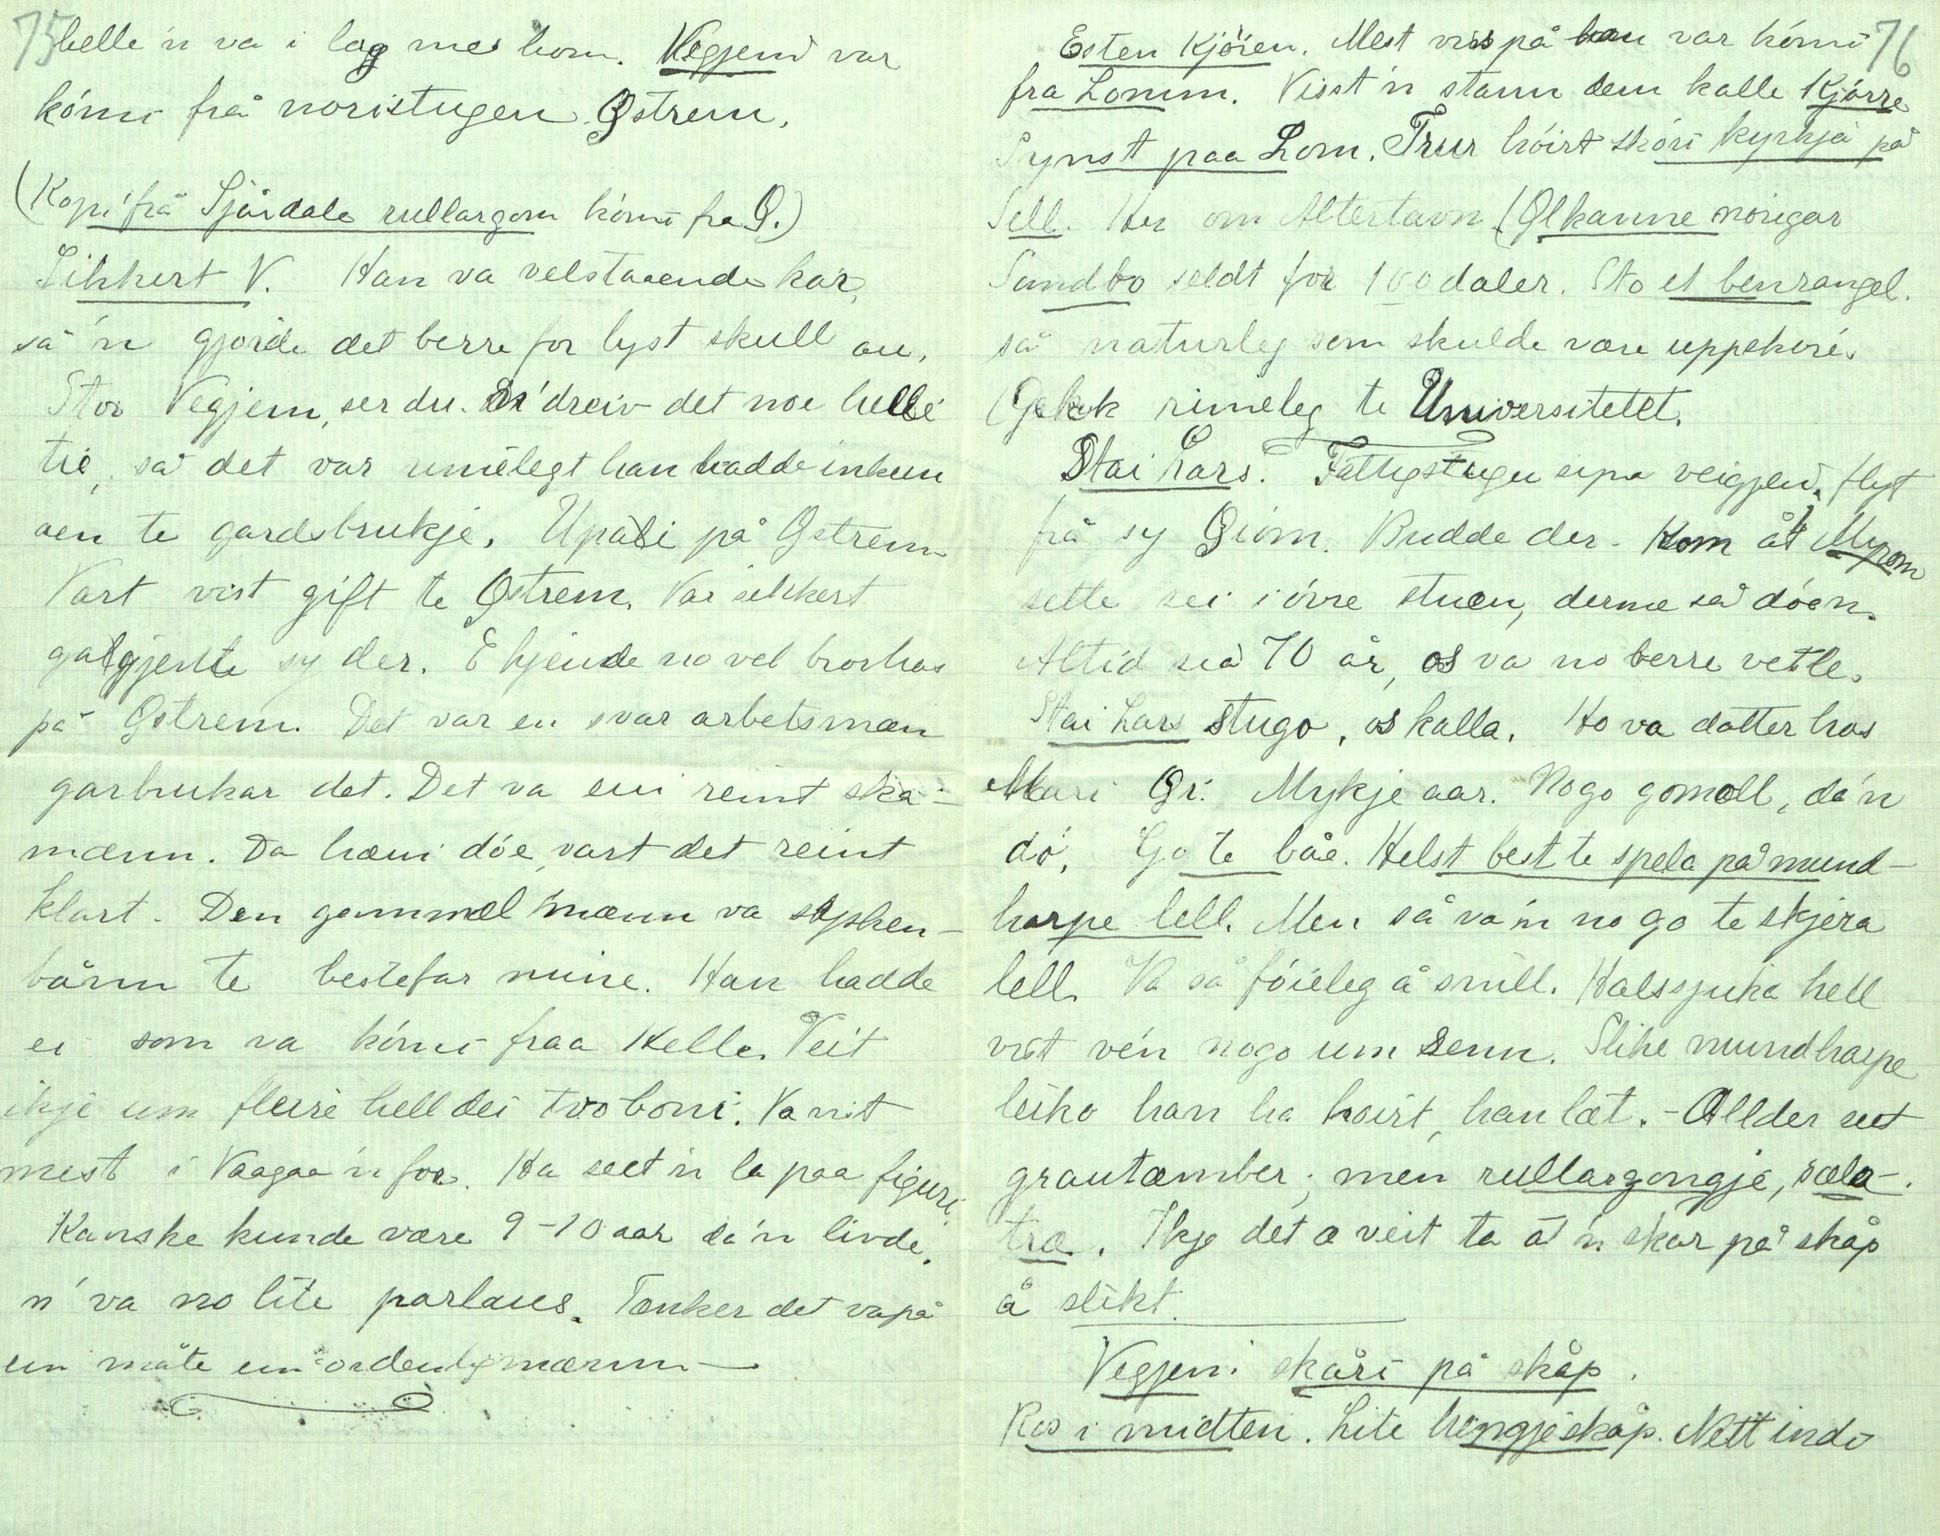 75
helle 'n va i lag mes hom. Vegjem var
kómé frå noristugen Østrem.
(Kopi frå Sjårdale rullargom kómi fra Ø.)
Sikkert V. Han va velstaaende kar,
så 'n gjorde det berre for lyst skull au.
Stor Vegjem, ser du. Dei dreiv det noe helle
tie, så det var umélegt han hadde inkun
aen te gardsbrukje. Upåli på Østrem
Vart vist gift te Østrem. Var sikkert
gatgjente sy der. E kjende no vel brorhas
på Østrem. Det var en svar arbetsmæn
garbrukar det. Det va ein reint ska-
mænn. Da hæni dóe, vart det reint
klart. Den gammæl mænn va sysken-
bånn te bestefar mine. Han hadde
ei som va kómé fraa Kelle. Veit
ikje um fleire hell dei tvo boni. Va nit
mest i Vaagaa 'n for. Ha seet 'n la paa figuri
Kanske kunde være 9-10 aar da 'n livde.
n' va no lite parlaus. Tænker det va på
ein måte ein ordentlig mænn
76
Esten Kjöien. Mest viss på han var kómé
fra Lomm. Visst 'n stann dem kalle Kjórre
Synst paa Lom. Trur hóirt skóri kyrkja på
Sell. Her om Altertavn (Ølkanne noregar
Sandbo seldt for 100 daler. Sto et benrangel.
så naturleg som skulde være uppskore.
(Gekk rimeleg te Universitetet.
Stai Lars. Fattigstugu sipa veigjen, flyt
frå sy Øióm. Budde der. Kom åt Myrom
sette sei i óvre stuen, derme så dóen.
Altid så 70 år, os va no berre vetle.
Stai Lars stugo, os kalla. Ho va dotter has
Mari Øi. Mykje aar. Nogo gomall, då 'n
dó. Go te båe. Helst best te spela på mund-
harpe lell. Men så va 'n no go te skjera
lell. Va så fóieleg å snill. Halssjuka hell
vist vén nogo um senn. Slike mundharpe
leiko han ha hoirt, han læt. - Allder seet
grautæmber; men rullargongje, sæla-
træ. Ikje det æ veit ta at 'n skar på skåp
å slikt.
Vegjem i skåri på skåp.
Ros i midten. Lite hengjeskåp. Nett indo